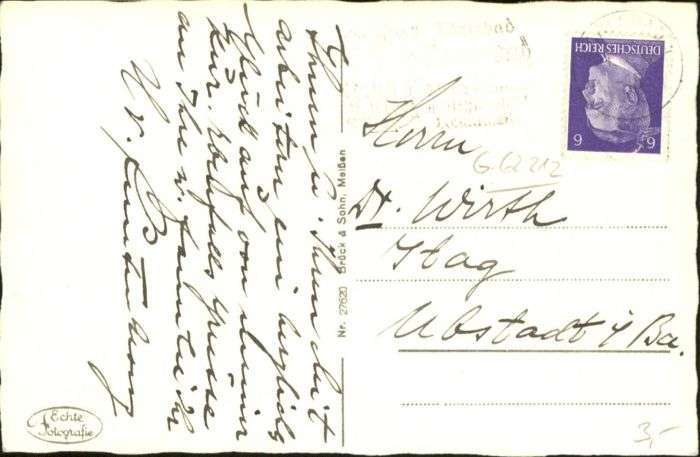 Ihnen u. Ihren Mit
arbeitern ein herzlich
Glück auf von meiner
Kur. Ebenfalls Grüsse
an Ihre w. Familie
Ihr
Nr. 27620 Brück & Sohn, Meißen
Echte
Fotografie
DEUTSCHES REICH
6 6
Herrn
G. 62 212
Dr. Wirth
Itag
Ubstadt i/Ba.
3,-